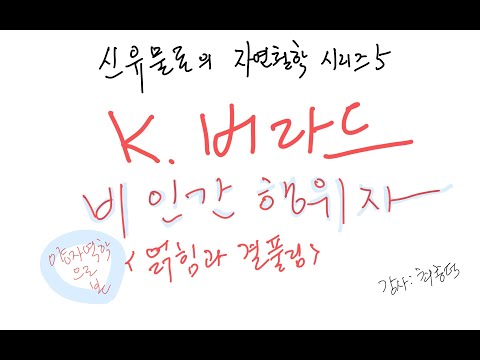 신유물론의 자연철학 시리즈 5
K. 버라드
비인간 행위자
양자역학
으로
본
<얽힘과 결풀림>
강사: 최종덕